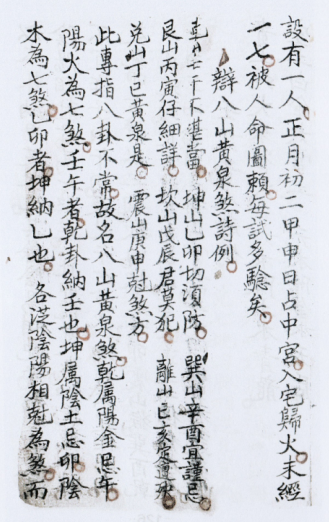 設有一人正月初二甲申日占中宮入宅歸火未經
一七被人命圖賴每試多驗矣
辯八山黃泉煞詩例
乾山壬午不堪當 坤山乙卯切須防 巽山辛酉宜謹忌
艮山丙寅仔細詳 坎山戊辰君莫犯 離山己亥定遭殃
兌山丁巳黃泉是 震山庚申尅煞方
此專指八卦不常故名八山黃泉煞乾属陽金忌午
陽火為七煞壬午者乾卦納壬也坤属陰土忌卯陰
木為七煞乙卯者坤納乙也 各從陰陽相尅為煞而